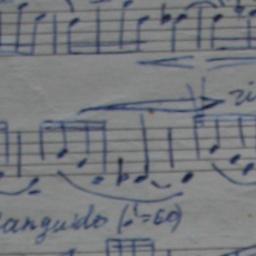 languido (♩=60)